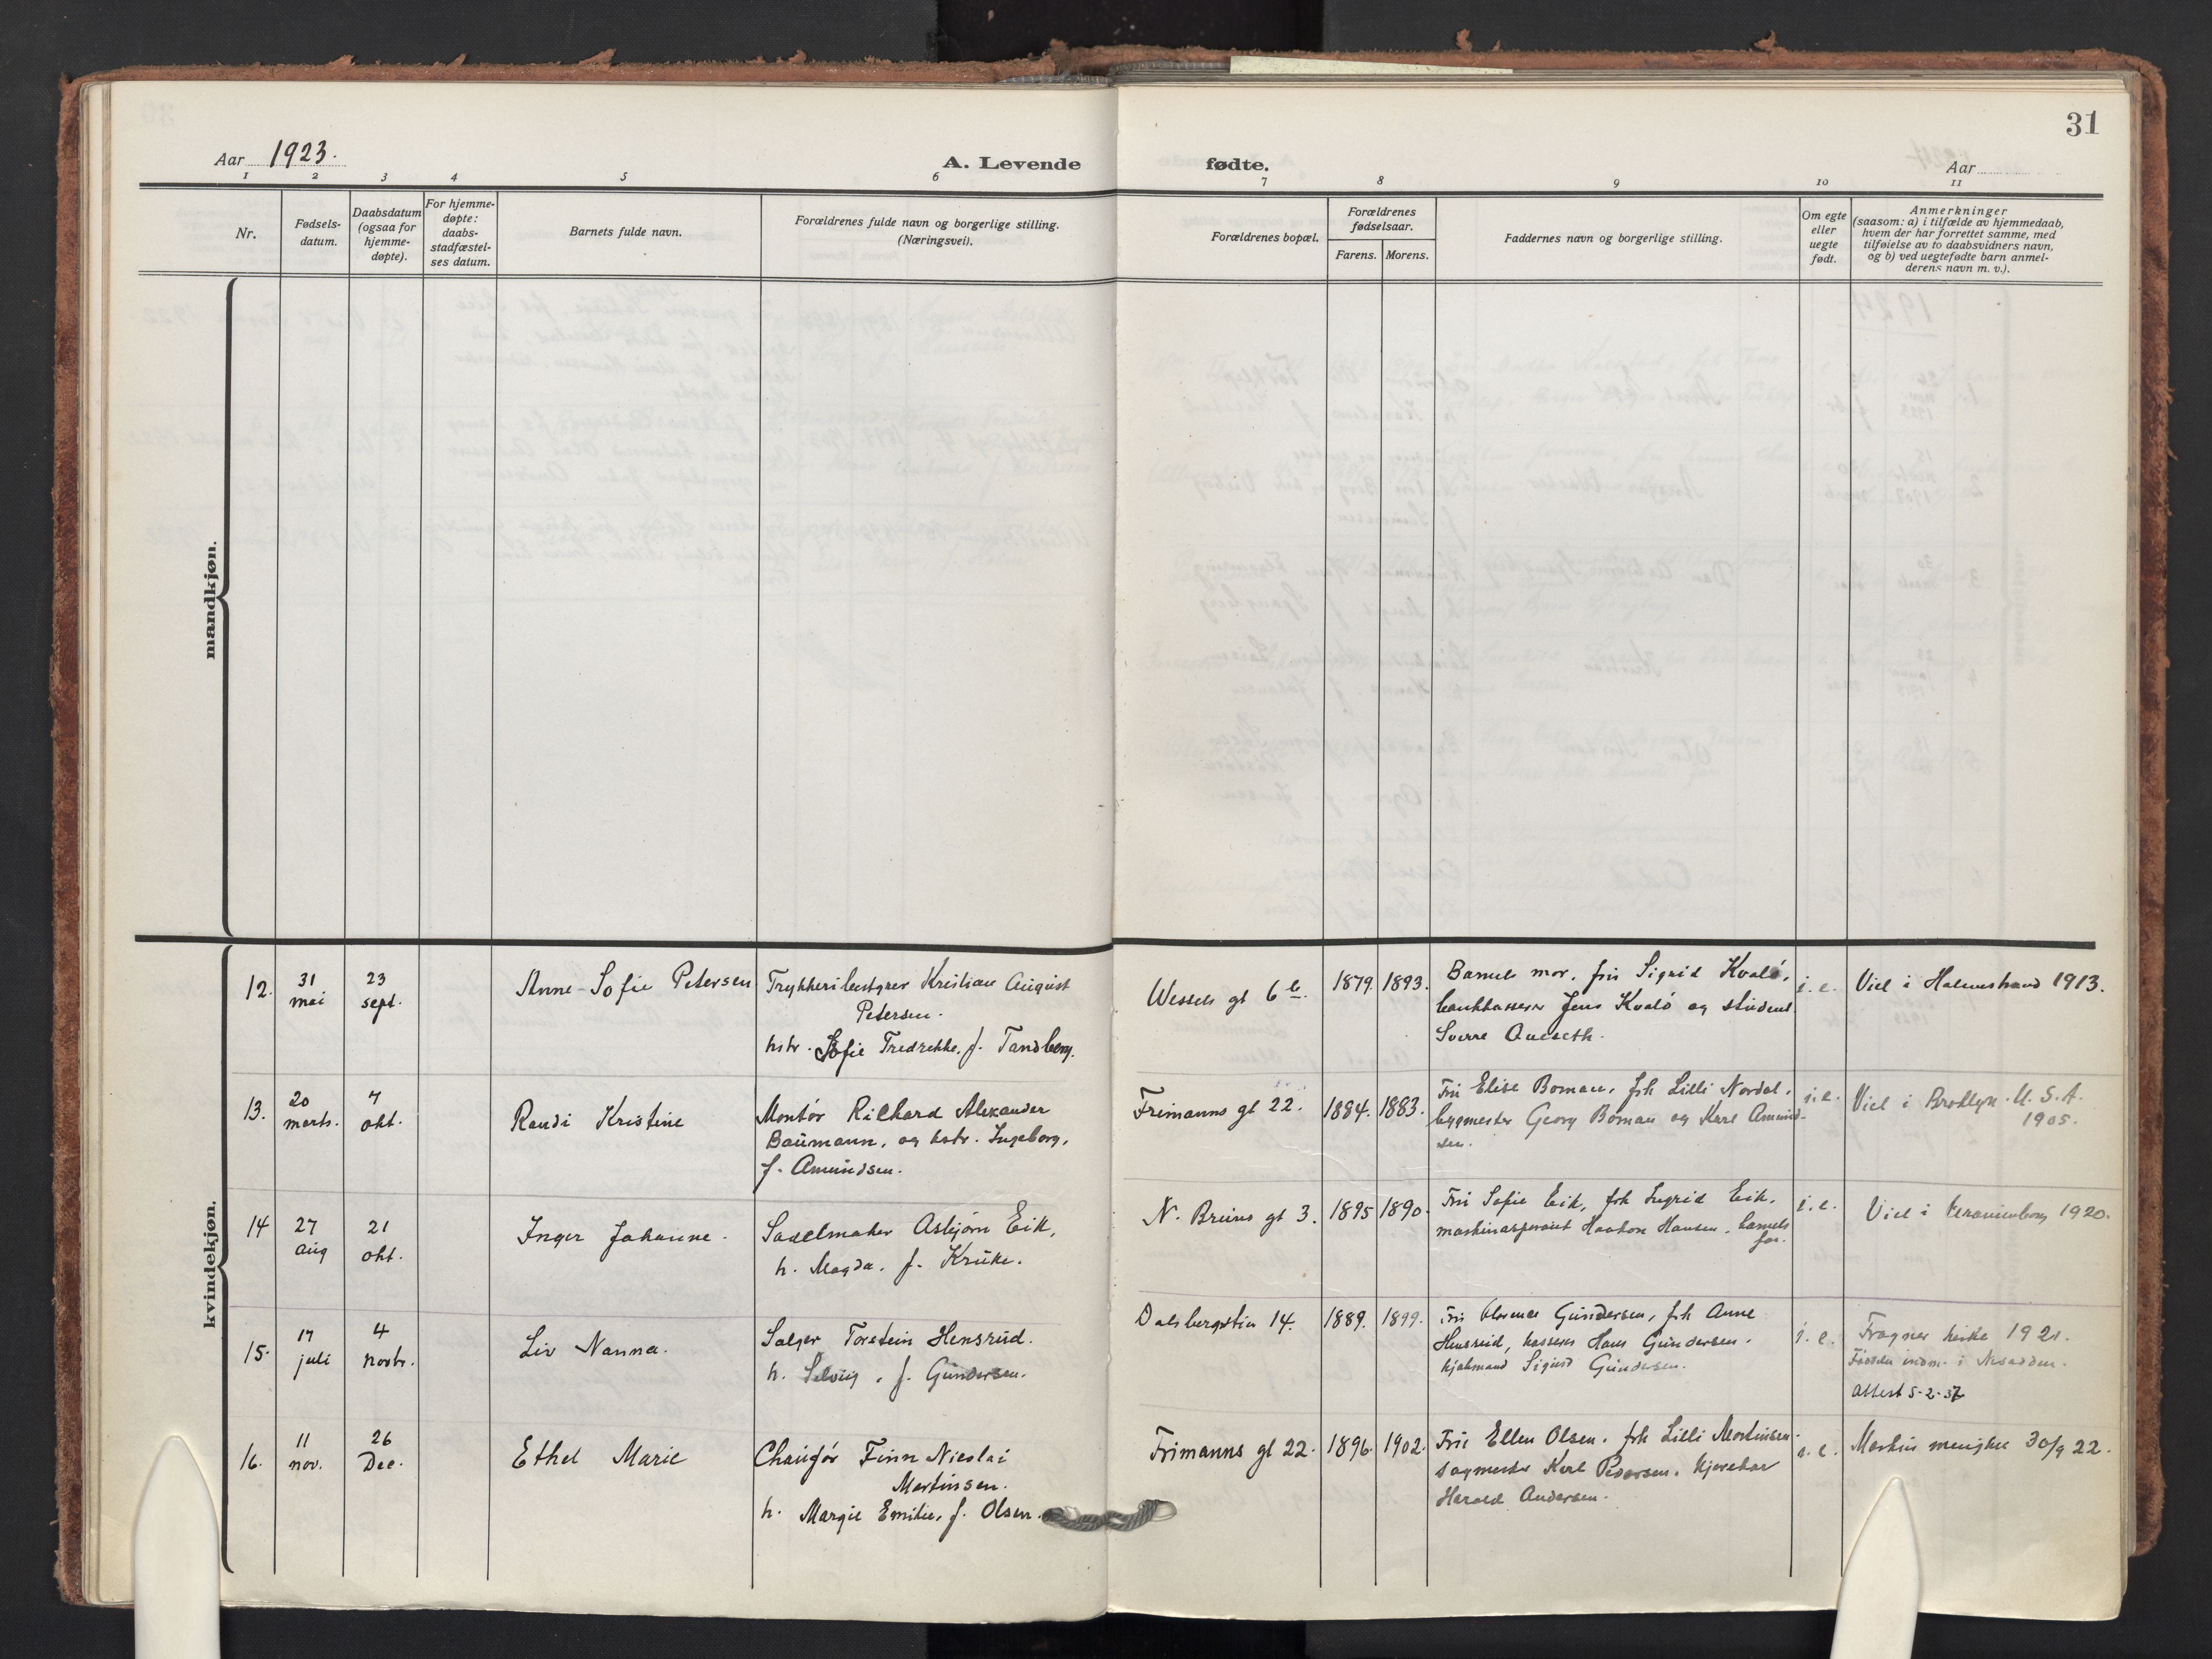 31
Aar 1923.
A. Levende fødte.
Aar
1 2 3 4 5 6 7 8 9 10 11
Nr.
Fødsels-
datum.
Daabsdatum
(ogsaa for
hjemme-
døpte).
For hjemme-
døpte:
daabs-
stadfæstel-
ses datum.
Barnets fulde navn.
Forældrenes fulde navn og borgerlige stilling.
(Næringsvei).
Forældrenes bopæl.
Forældrenes
fødselsaar.
Farens. Morens.
Faddernes navn og borgerlige stilling.
Om egte
eller
uegte
født.
Anmerkninger
(saasom: a) i tilfælde av hjemmedaab,
hvem der har forrettet samme, med
tilføielse av to daabsvidners navn,
og b) ved uegtefødte barn anmel-
derens navn m. v.).
mandkjøn.
kvindekjøn.
12.
31
mai
23
sept.
Anne-Sofie Petersen
Trykkeribestyrer Kristian August
Petersen.
hstr. Sofie Fredrekke. f. Tandberg.
Wessels gt 6 b.
1879. 1893.
Barnets mor, fru Sigrid Kvalö,
bankkasserer Jens Kvalö og student
Sverre
i. e.
Viel i Holmestrand 1913.
13.
20
marts.
7
okt.
Randi Kristine
Montör Richard Alexander
Baumann, og hstr. Ingeborg,
f. Amundsen.
Frimanns gt 22.
1884. 1883.
Fru Elise Boman, frk Lilli Nordal,
bygmester Georg Boman og Karl Amund-
sen.
i. e.
Viel i Broklyn. U. S. A.
1905.
14
27
aug
21
okt.
Inger Johanne.
Sadelmaker Asbjörn Eik,
h. Magda. f. Kruke.
N. Bruns gt 3.
1895 1890.
Fru Sofie Eik, frk Ingrid Eik,
maskinaspirant Haakon Hansen. barnets
far.
i. e.
Viel i Uranienborg 1920.
15.
17
juli
4
novbr.
Liv Nanna.
Sælger Torstein Hensrud.
h. Solveig, f. Gundersen.
Dalsbergstien 14.
1889. 1899.
Fru Gundersen, frk Anne
Hensrud, kasserer Hans Gundersen.
Sigurd Gundersen.
i. e.
Frogner kirke 1921.
i Nesodden.
attest 5-2-37
16.
11
nov.
26
Dec.
Ethel Marie
Chauffør Finn Nicolai
Martinsen.
h. Margie Emilie, f. Olsen.
Frimanns gt 22.
1896. 1902.
Fru Ellen Olsen. frk Lilli Martinsen.
Karl Pedersen. kjørekar
Harald Andersen.
i. e.
Markus menighet 30/9 22.